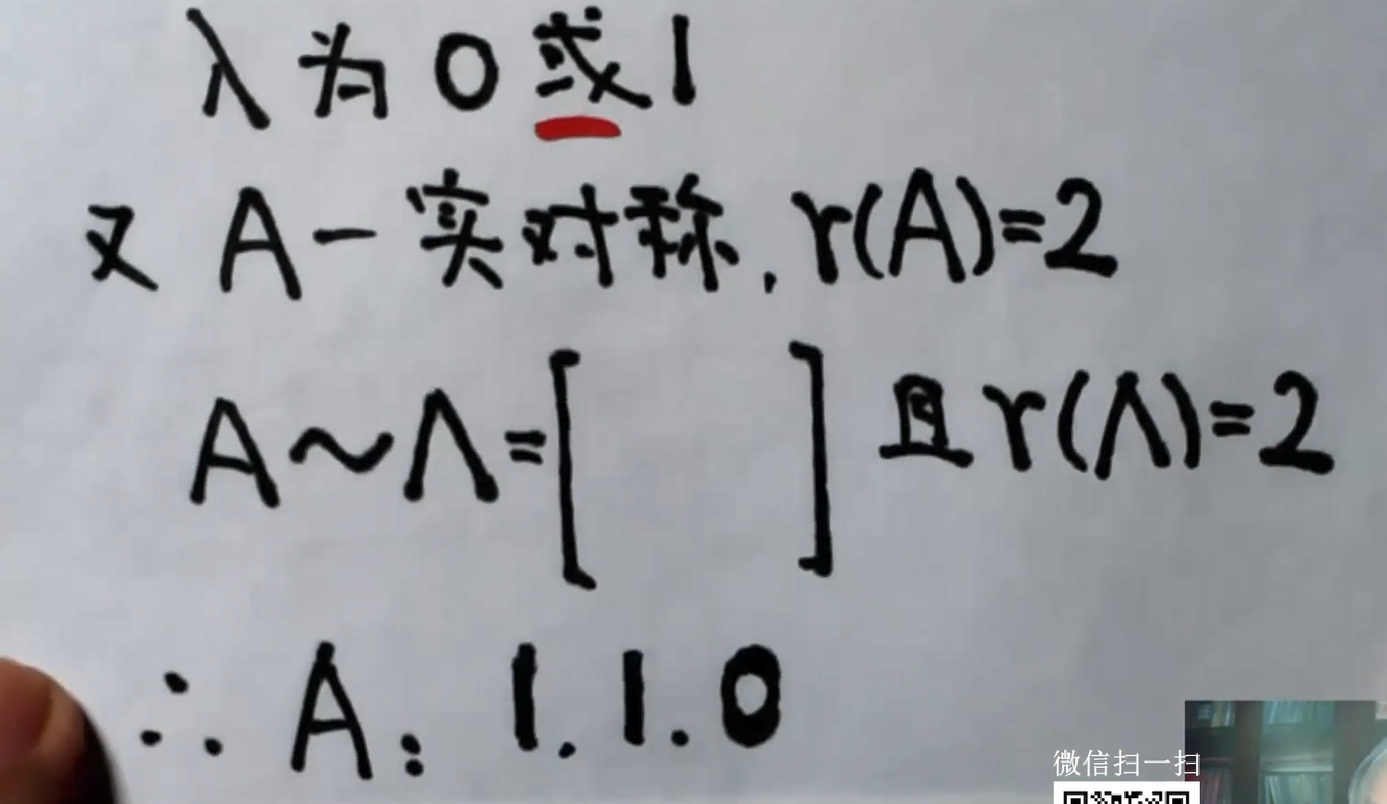 λ为0或1
又 A-实对称, r(A)=2
A~Λ=[ ] 且r(Λ)=2
∴ A: 1.1.0
微信扫一扫